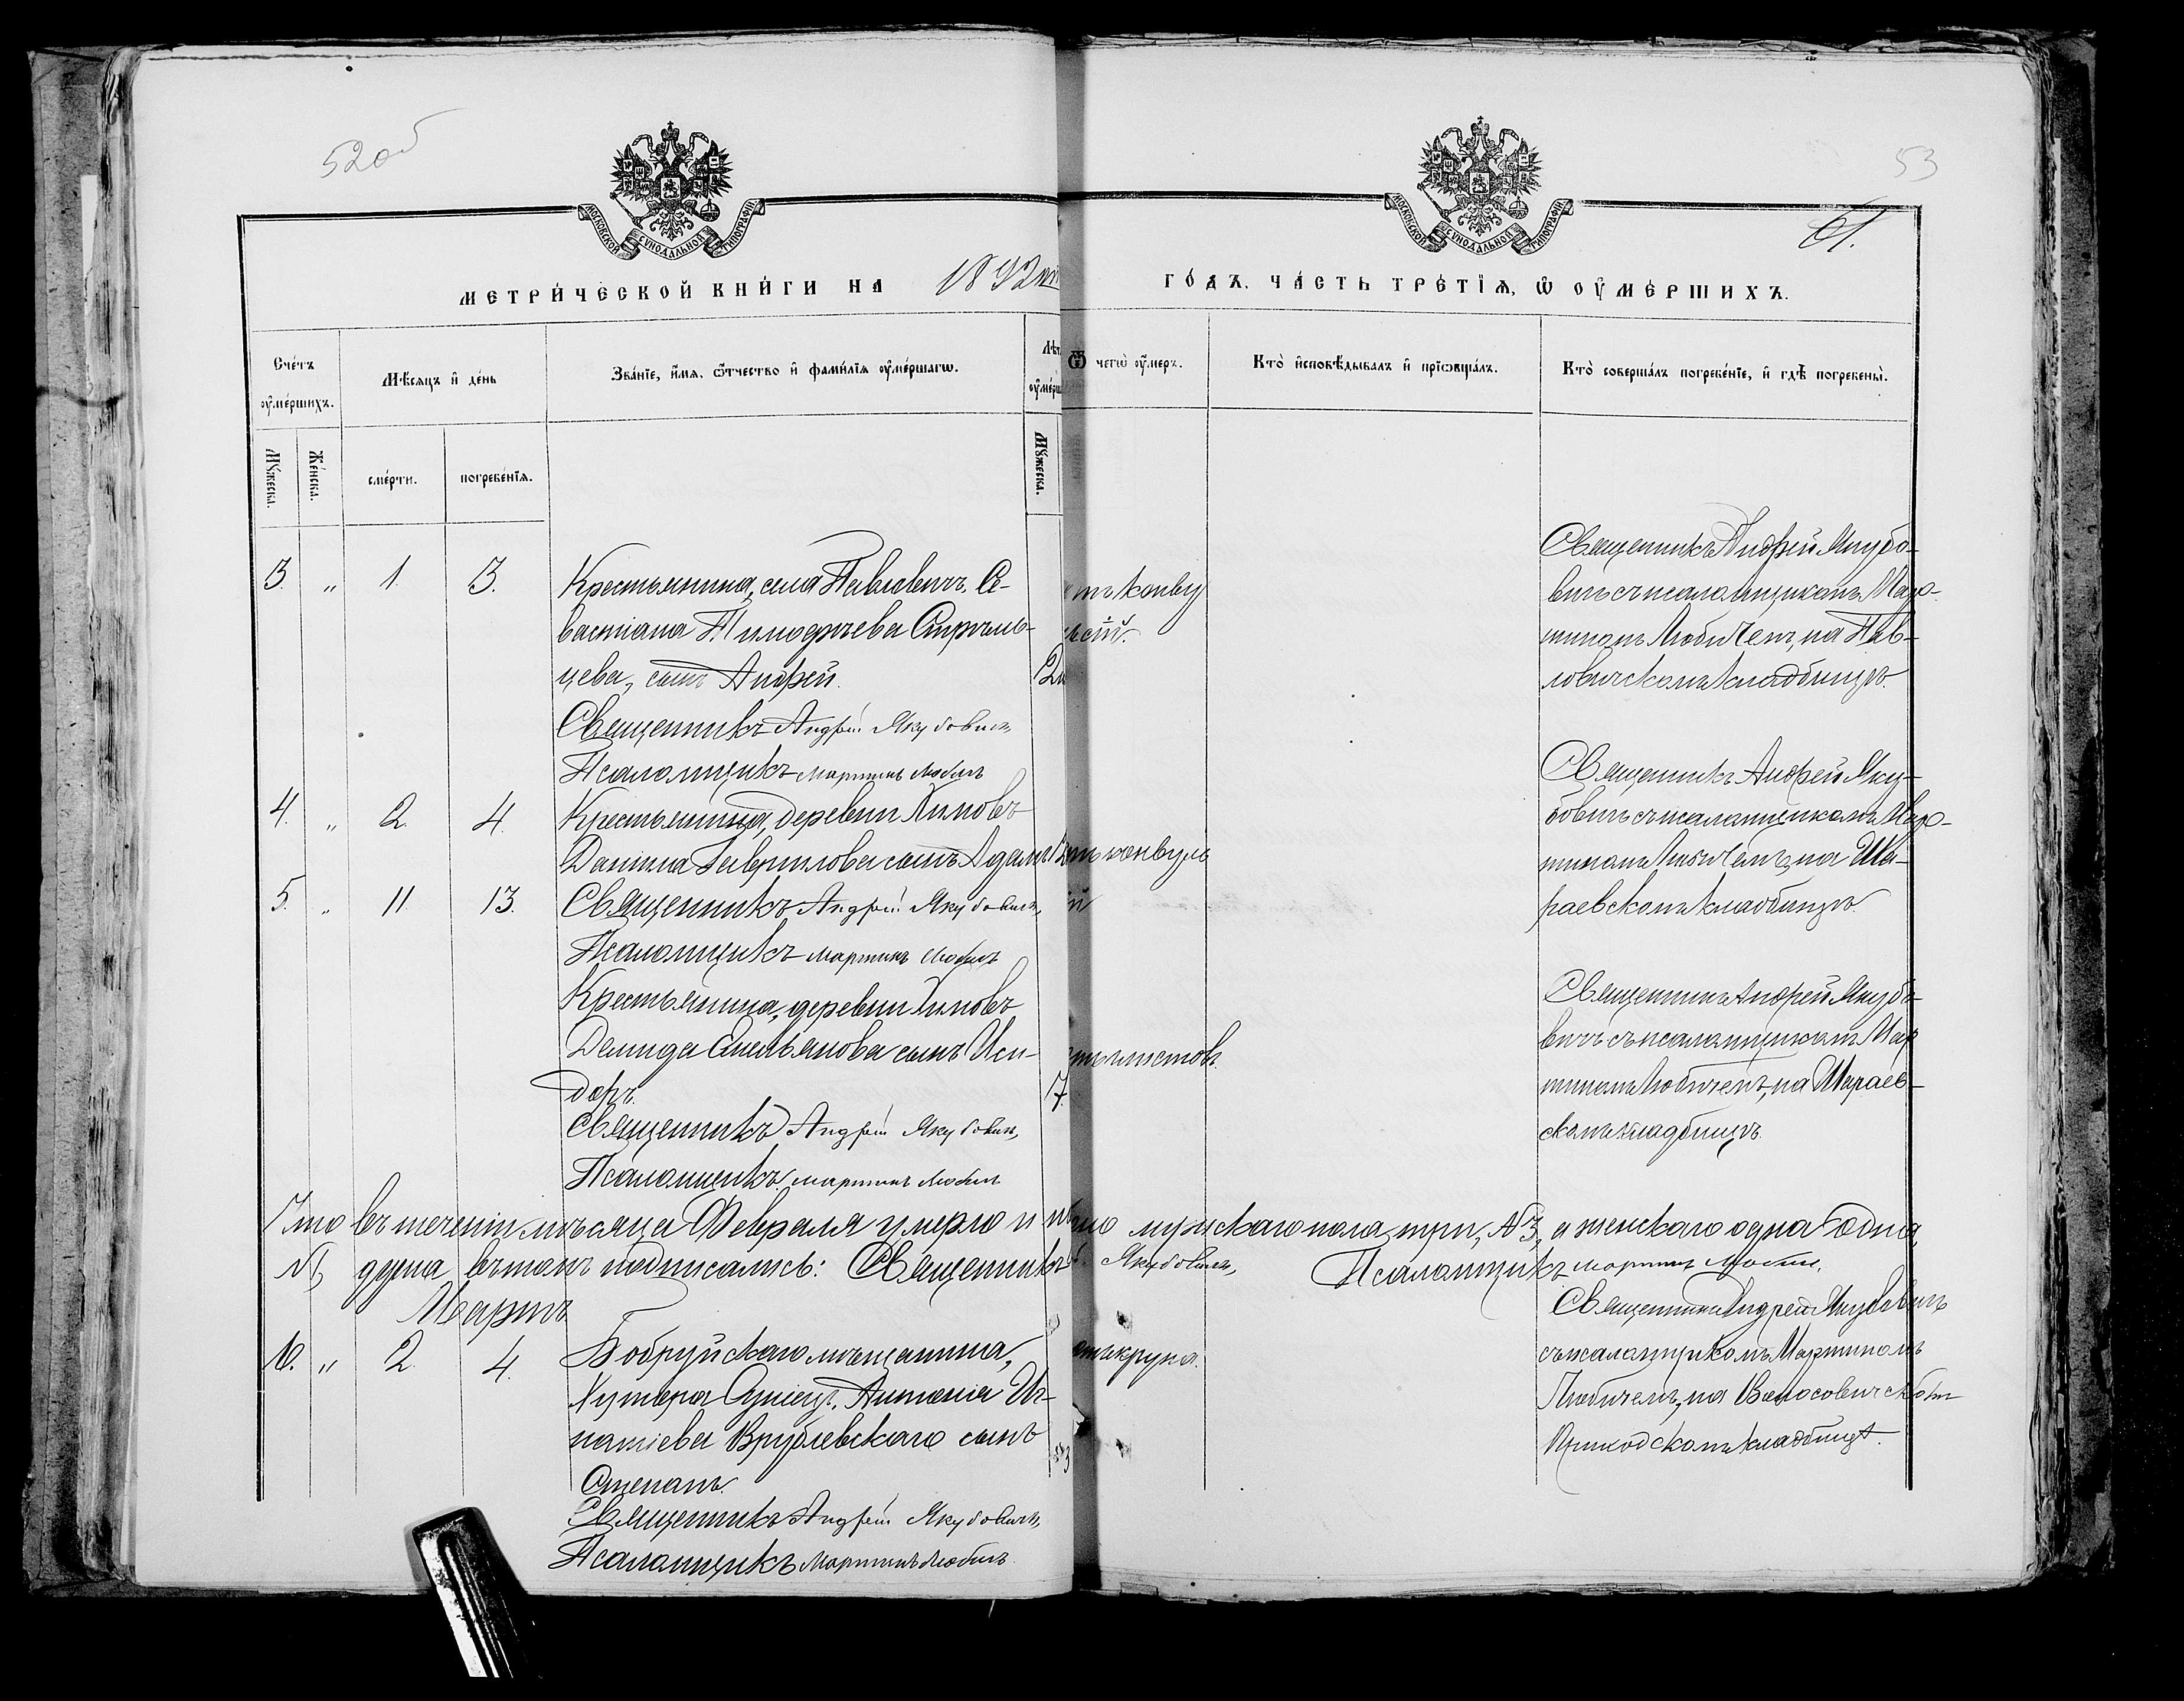 52об
53
61.
МОСКОВСКОЙ СѴНОДАЛЬНОЙ ТИПОГРАФІИ
МОСКОВСКОЙ СѴНОДАЛЬНОЙ ТИПОГРАФІИ
МЕТРИ́ЧЕСКОЙ КНИ́ГИ НА 1892
ГО́ДЪ, ЧА́СТЬ ТРЕ́ТІѦ, Ѡ ОУ҆МЕ́РШИХЪ.
Сче́тъ оу҆ме́ршихъ.
Мѣ́сѧцъ и҆ де́нь
Зва́нїе, и҆́мѧ, ѻ҆́тчество и҆ фами́лїѧ оу҆ме́ршагѡ.
Лѣт
оу҆ме́рш
Ѿ чегѡ̀ оу҆́меръ.
Кто̀ и҆сповѣ́дывалъ и҆ прїѡбща́лъ.
Кто̀ соверша́лъ погребе́нїе, и҆ гдѣ̀ погребены̀.
Мꙋ́жеска.
Же́нска.
сме́рти.
погребе́нїѧ.
Мꙋ́жеска.
3. „ 1. 3.
Крестьянина, села Павловичъ, Се-
вастіана Тимофѣева Стрѣль-
цева, сынъ Андрей.
Священникъ Андрей Якубовичъ,
Псаломщикъ Мартинъ Любичъ
конву
Священникъ Андрей Якубо-
вичъ съ псаломщикомъ Мар-
тиномъ Любичемъ, на Пав-
ловичскомъ кладбищѣ.
4. „ 2. 4.
Крестьянина, деревни Химовъ
Даніила Гаврилова сынъ Адамъ
конвуль
Священникъ Андрей Якубовичъ,
Псаломщикъ Мартинъ Любичъ
Священникъ Андрей Яку-
бовичъ съ псаломщикомъ Мар-
тиномъ Любичемъ, на Ша-
раевскомъ кладбищѣ.
5. „ 11. 13.
Крестьянина, деревни Химовъ
Демида Емельянова сынъ Иси-
доръ.
17.
глистовъ.
Священникъ Андрей Якубовичъ,
Псаломщикъ Мартинъ Любичъ
Священникъ Андрей Якубо-
вичъ съ псаломщикомъ Мар
тиномъ Любичемъ, на Шараев-
скомъ кладбищѣ.
Что въ теченіи мѣсяца Февраля умерло и мужскаго пола три, №3, а женскаго одна
№1, душа въ томъ подписались: Священникъ Якубовичъ, Псаломщикъ Мартинъ Любичъ.
Мартъ
6. „ 2. 4.
Бобруйскаго мѣщанина,
Хутора Антонія Иг-
натіева Врублевскаго сынъ
Степанъ.
крупа.
Священникъ Андрей Якубовичъ,
Псаломщикъ Мартинъ Любичъ
Священникъ Андрей Якубовичъ
съ псаломщикомъ Мартиномъ
Любичемъ, на
Приходскомъ кладбищѣ.